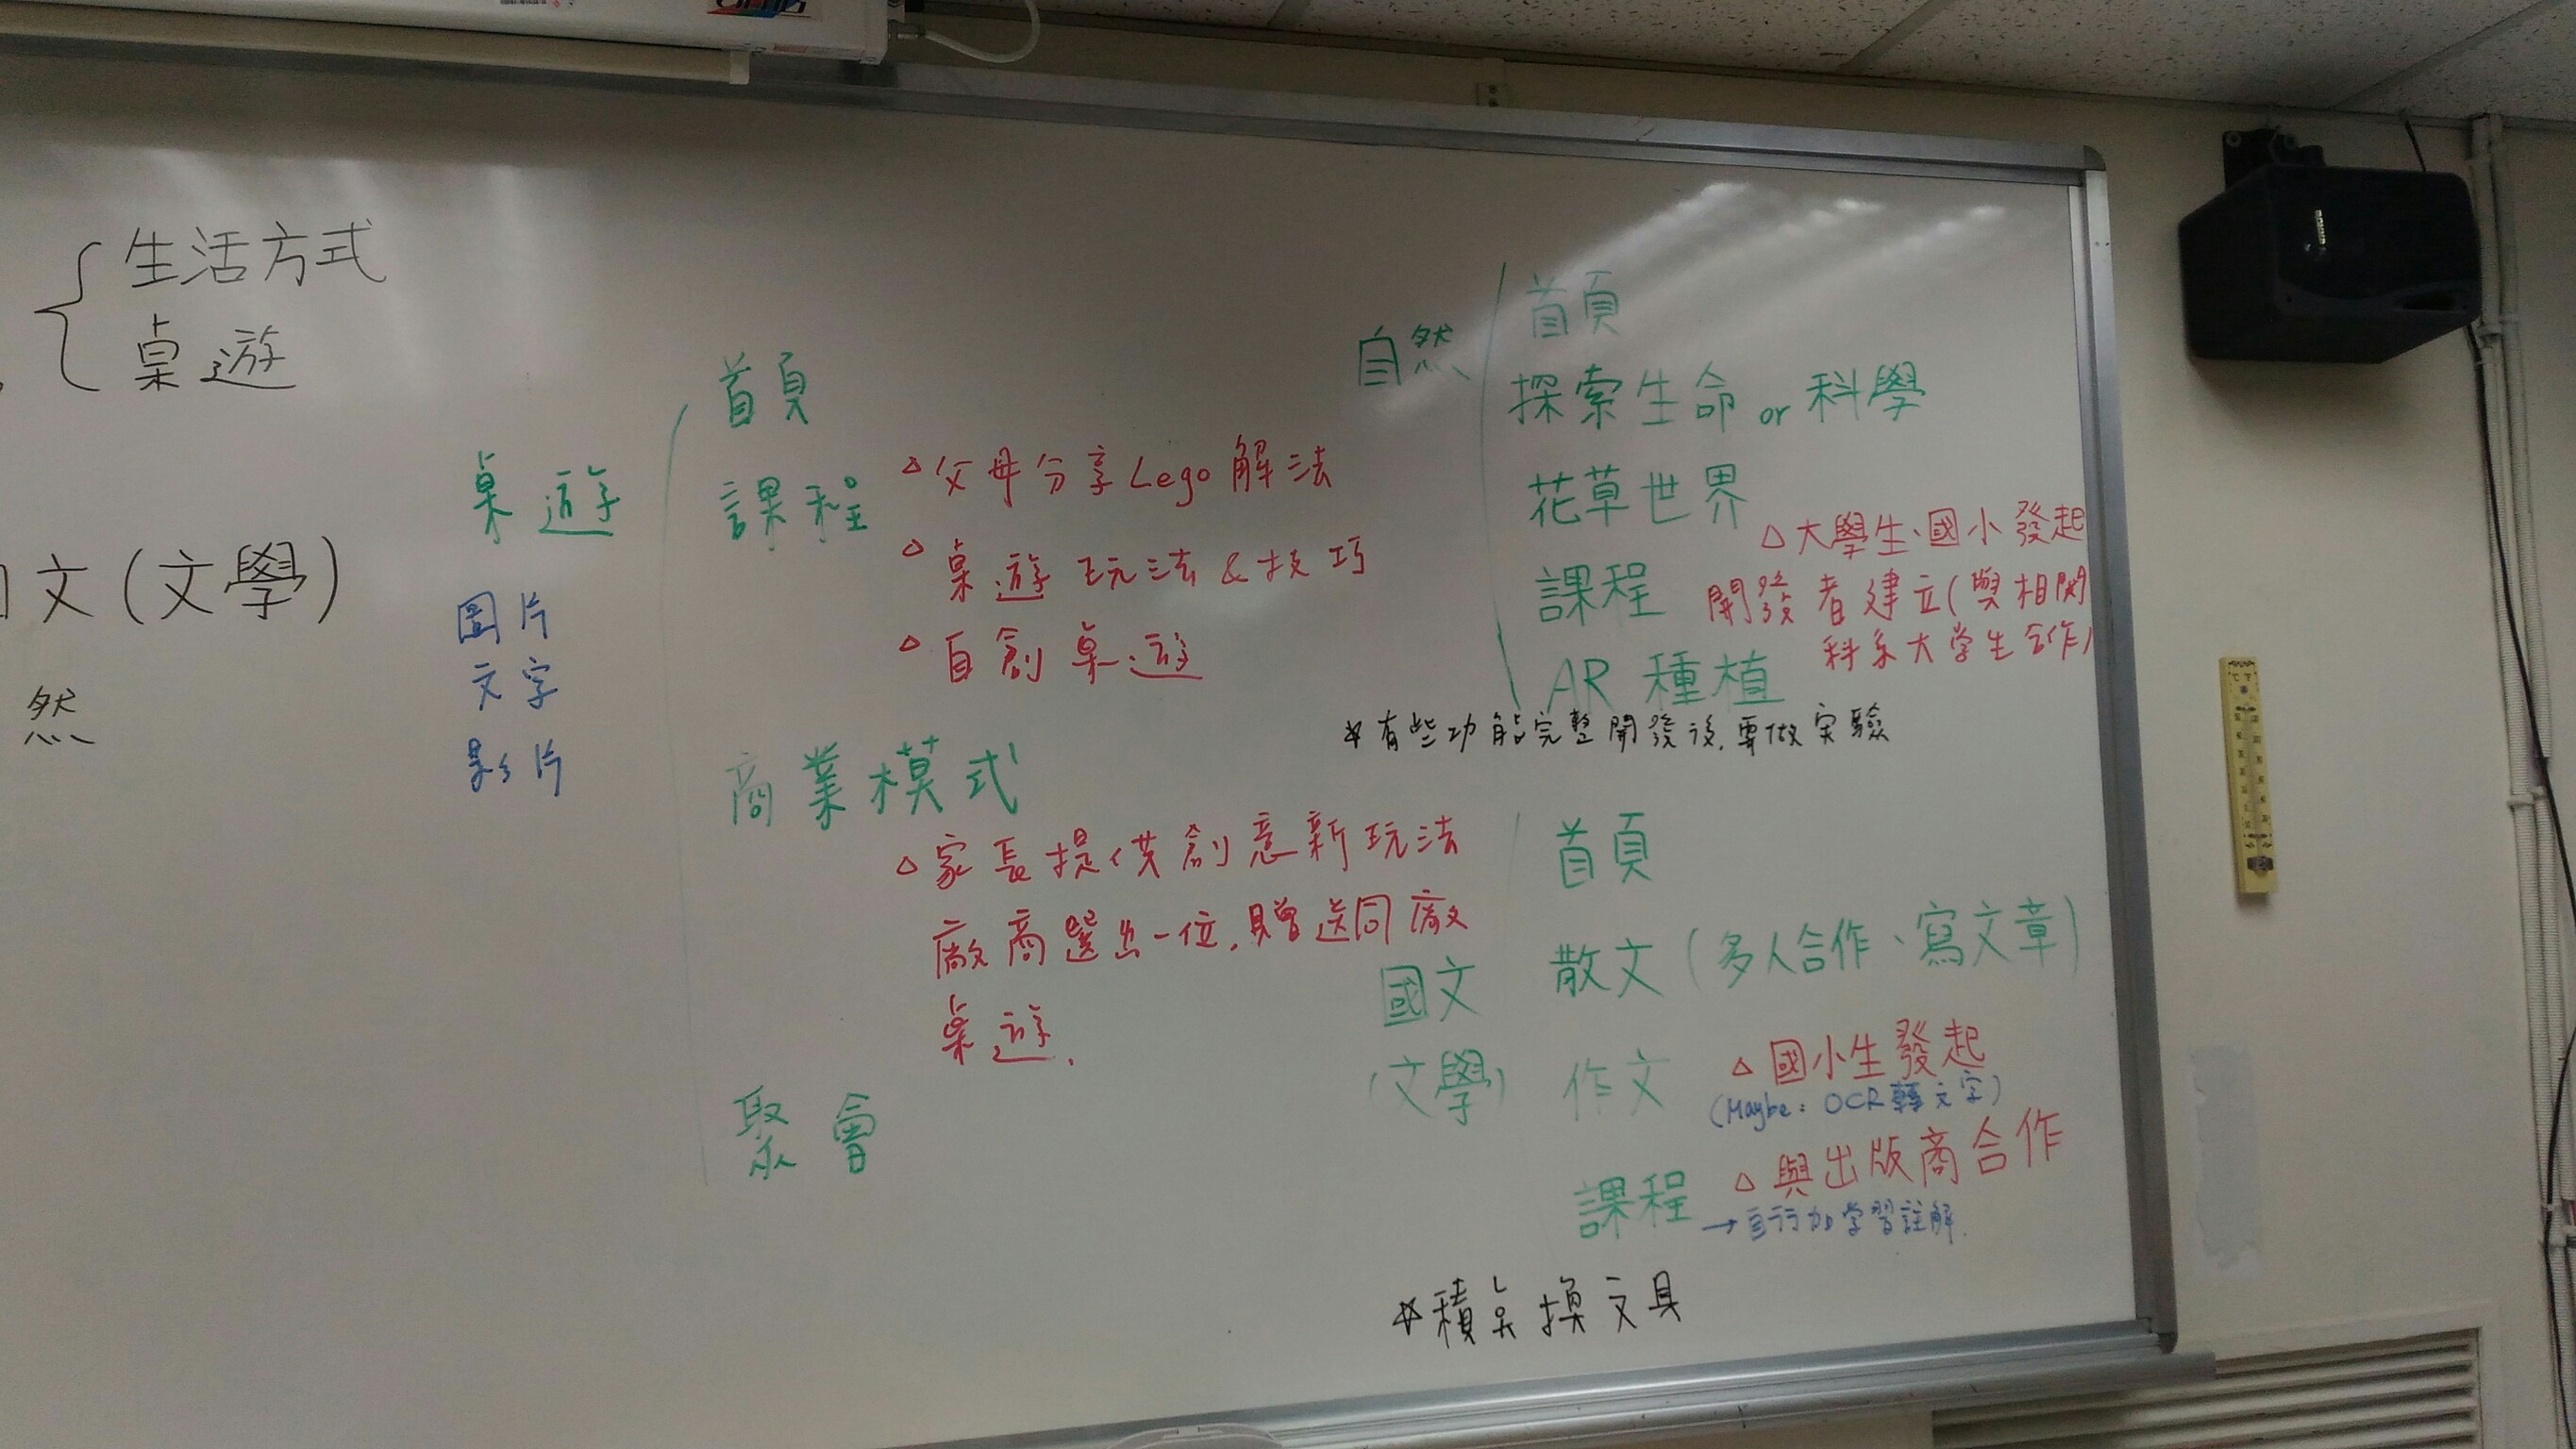 生活方式
桌遊
文(文學)
然
桌遊
圖片
文字
影片
首頁
課程
△父母分享Lego解法
△桌遊玩法&技巧
△自創桌遊
商業模式
△家長提供創意新玩法
廠商選出一位,贈送同廠
桌遊.
聚會
自然
首頁
探索生命 or 科學
花草世界
課程
△大學生、國小發起
開發者建立(與相關
科系大学生合作)
AR 種植
*有些功能完整開發後,要做实驗
國文
(文學)
首頁
散文(多人合作、寫文章)
作文
△國小生發起
(Maybe: OCR轉文字)
課程
△與出版商合作
→自行加学習註解.
*積点換文具